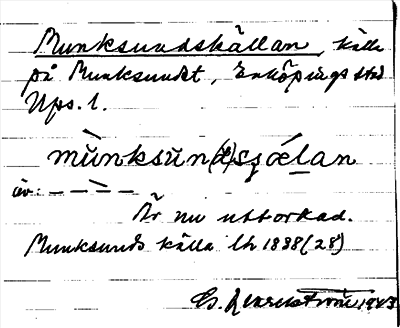 Munksundskällan, källa
på Munksundet, Enköpings stad
Ups. l.
mùnksŭn(t)sçǽlan
äv. – – ̀– –
Är nu uttorkad.
Munksunds källa lh 1838 (28)
1943